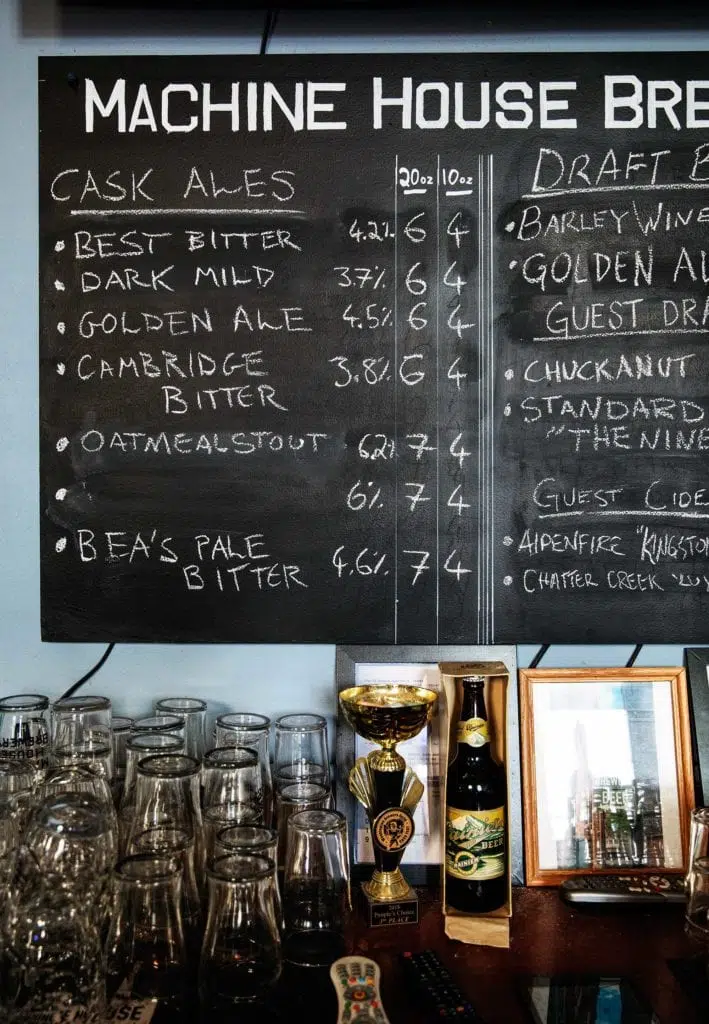 MACHINE HOUSE BRE
CASK ALES 20oz 10oz
• BEST BITTER 4.2% 6 4
• DARK MILD 3.7% 6 4
• GOLDEN ALE 4.5% 6 4
• CAMBRIDGE 3.8% 6 4
BITTER
• OATMEAL STOUT 6.2% 7 4
• 6% 7 4
• BEA'S PALE 4.6% 7 4
BITTER
DRAFT B
• BARLEY WINE
• GOLDEN AL
GUEST DRA
• CHUCKANUT
• STANDARD
"THE NINE
GUEST CIDE
• ALPENFIRE "KINGSTO
• CHATTER CREEK
BEER
RAINIER
People's Choice
1st PLACE
BEER